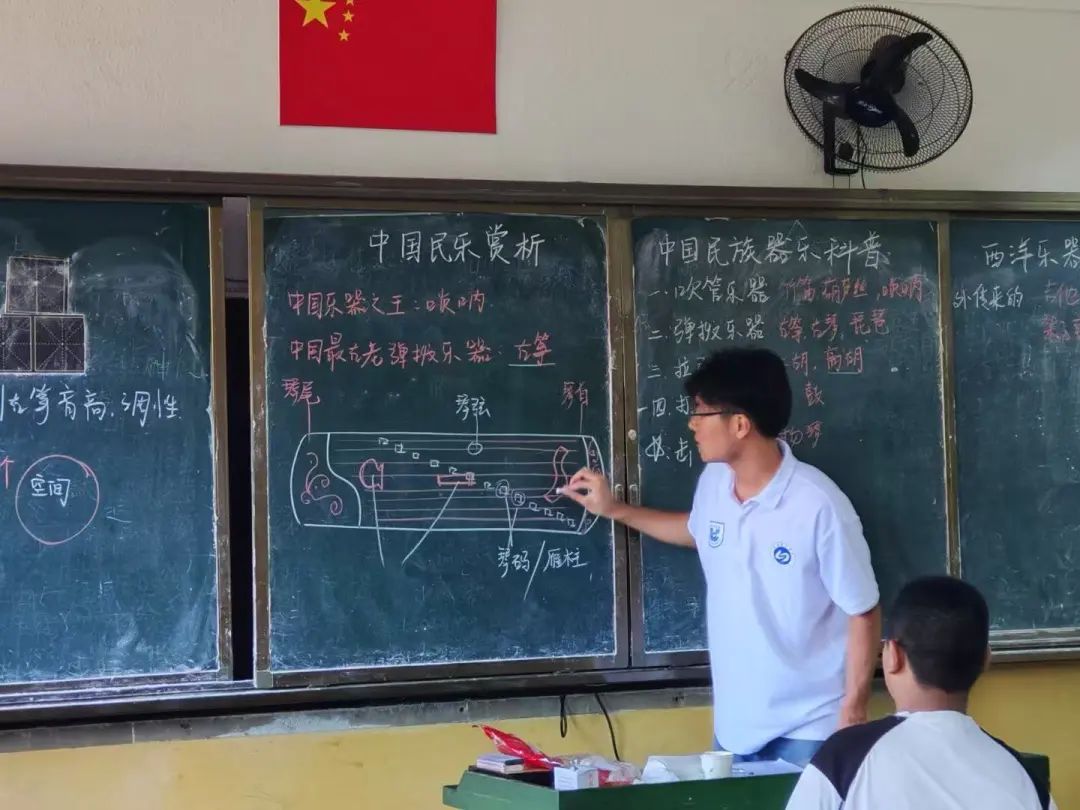 古筝音高、调性
空间
中国民乐赏析
中国乐器之王：唢呐
中国最古老弹拨乐器：古筝
琴尾
琴弦
琴首
琴码/雁柱
中国民族器乐科普
一.吹管乐器 竹笛.葫芦丝.唢呐
二.弹拨乐器 古筝,古琴,琵琶
三.拉
胡.高胡
四.
鼓
击
扬琴
西洋乐器
外传来的 吉他